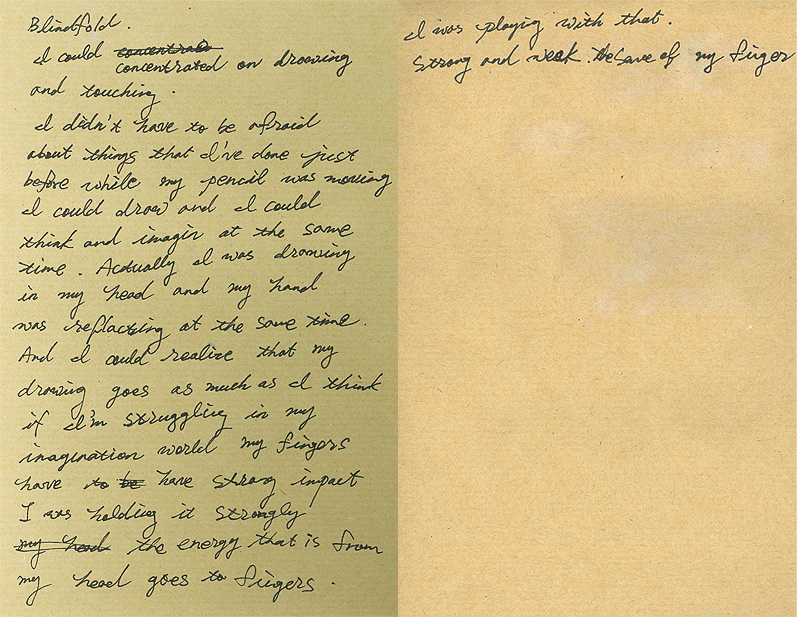 Blindfold.
I could concentrate
concentrated on drowing
and touching.
I didn't have to be afraid
about things that I've done just
before while my pencil was moving
I could drow and I could
think and imagin at the same
time. Actually I was drowing
in my head and my hand
was reflacting at the same time.
And I could realize that my
drowing goes as much as I think
if I'm struggling in my
imagination world my fingers
have to be have strong impact
I was holding it strongly
my head the energy that is from
my head goes to fingers.
I was playing with that.
strong and weak. of my finger